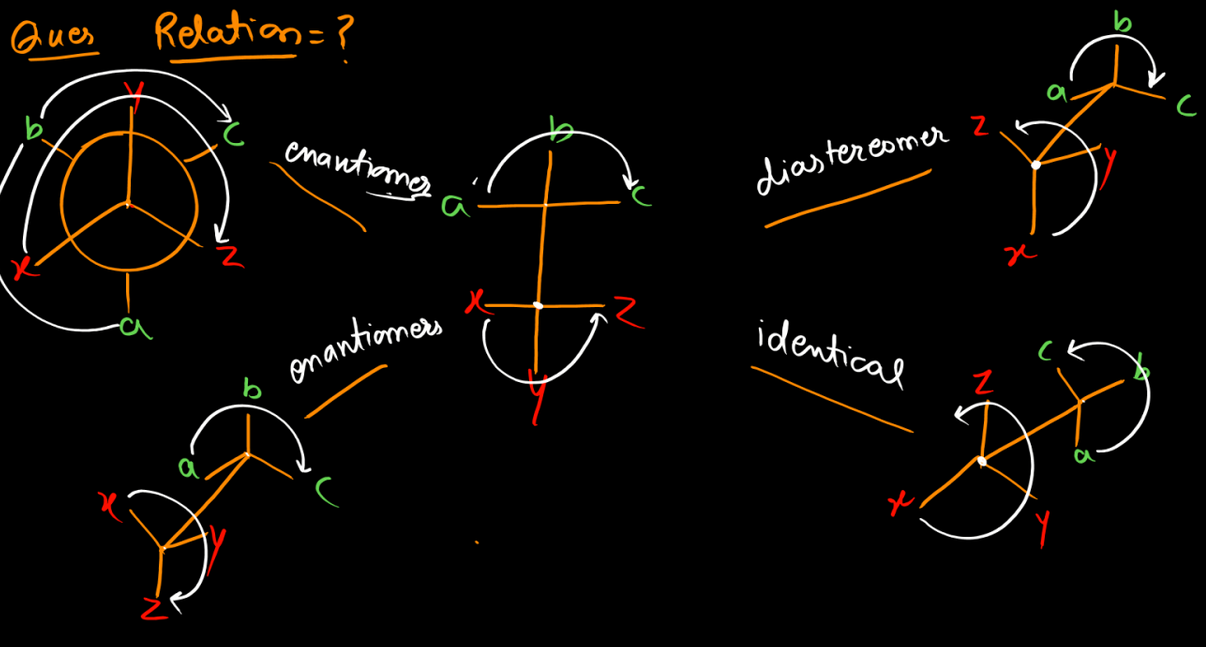 Ques Relation = ?
y
b
c
x
z
a
enantiomer
b
a
c
x
z
y
diastereomer
b
a
c
z
y
x
enantiomers
b
a
c
x
y
z
identical
c
b
z
a
x
y